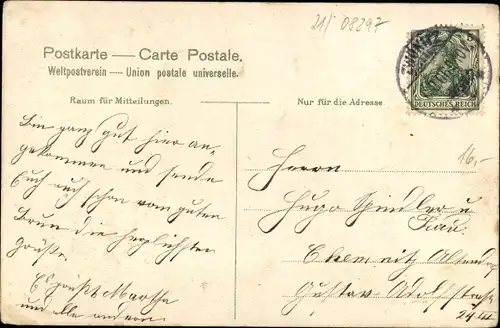 21/ 08297
Postkarte — Carte Postale.
Weltpostverein — Union postale universelle.
Raum für Mitteilungen.
Nur für die Adresse.
DEUTSCHES REICH
Bin ganz gut hier an-
gekommen und sende
Euch auch schon vom guten
Brun die herzlichsten
Grüße.
Es grüßt Marthe
und alle andern.
16,-
Herrn
Hugo Spindler u
Frau.
Chemnitz
Gustav Adolfstraße
24 III